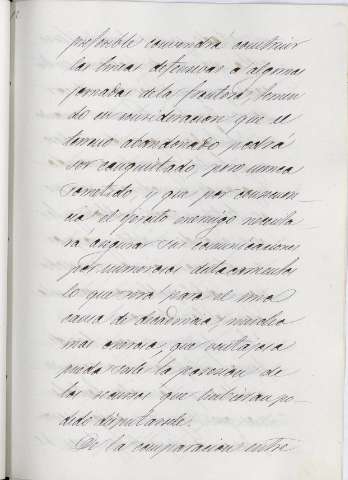 preferible convendrá construir
las lineas defensivas a algunas
jornadas de la frontera, tenien
do en consideracion que el
terreno abandonado podrá
ser conquistado, pero nunca
sometido y que por consecuen-
cia el ejército enemigo necesita-
rá asegurar sus comunicaciones
por numerosos destacamentos
lo que será para el una
causa de desventaja, mucho
mas que ventajosa
pueda serle la posesion de
los recursos que hubieran po-
dido disputarsele.
De la comparacion entre